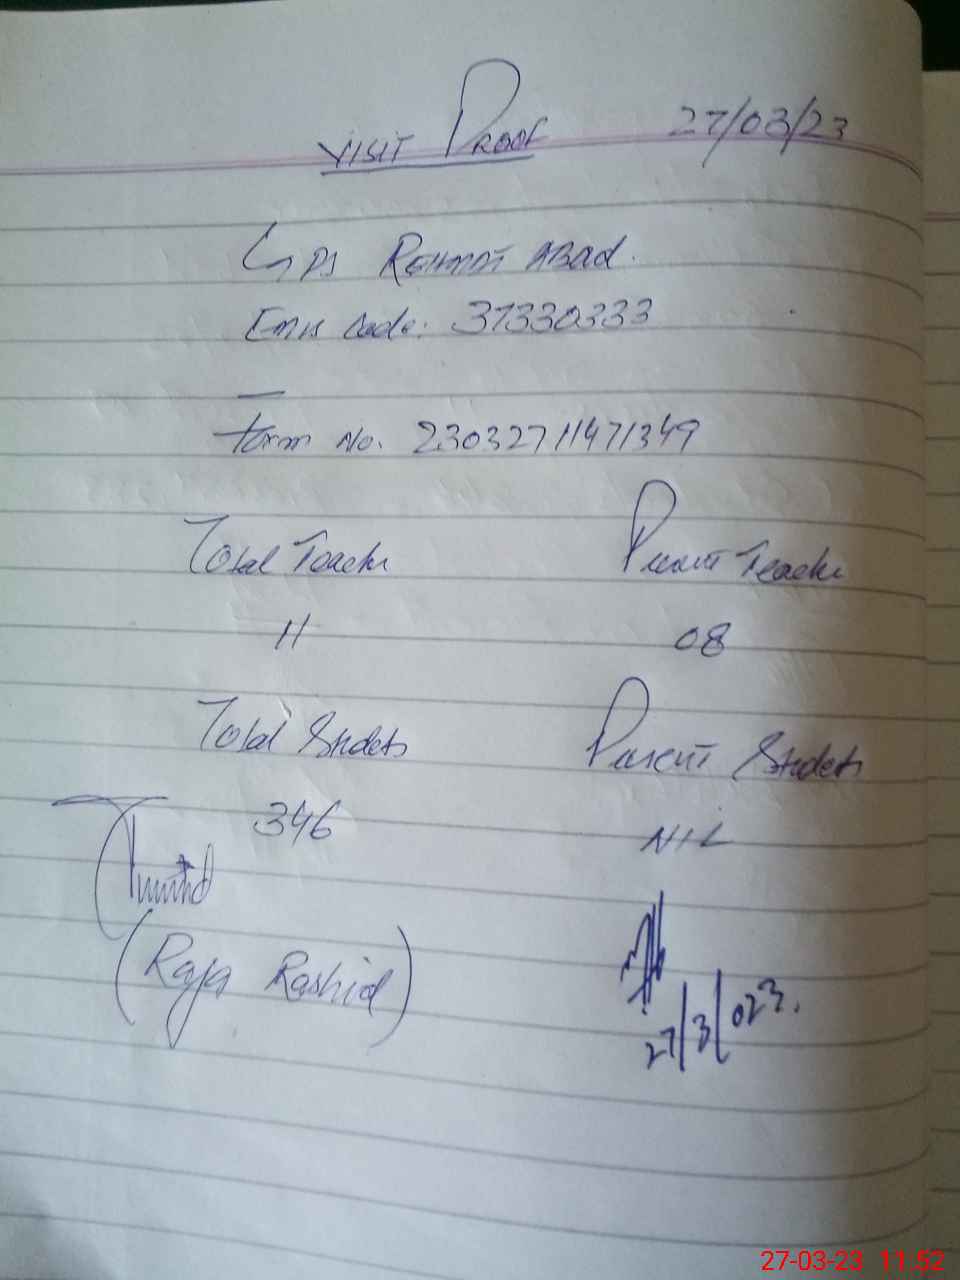 VISIT PROOF 27/03/23
GPS REHMAT ABAD.
Emis Code: 37330333
Form No. 23032711471349
Total Teacher Present Teacher
11 08
Total Students Present Students
346 NIL
(Raja Rashid)
27/3/023.
27-03-23 11:52